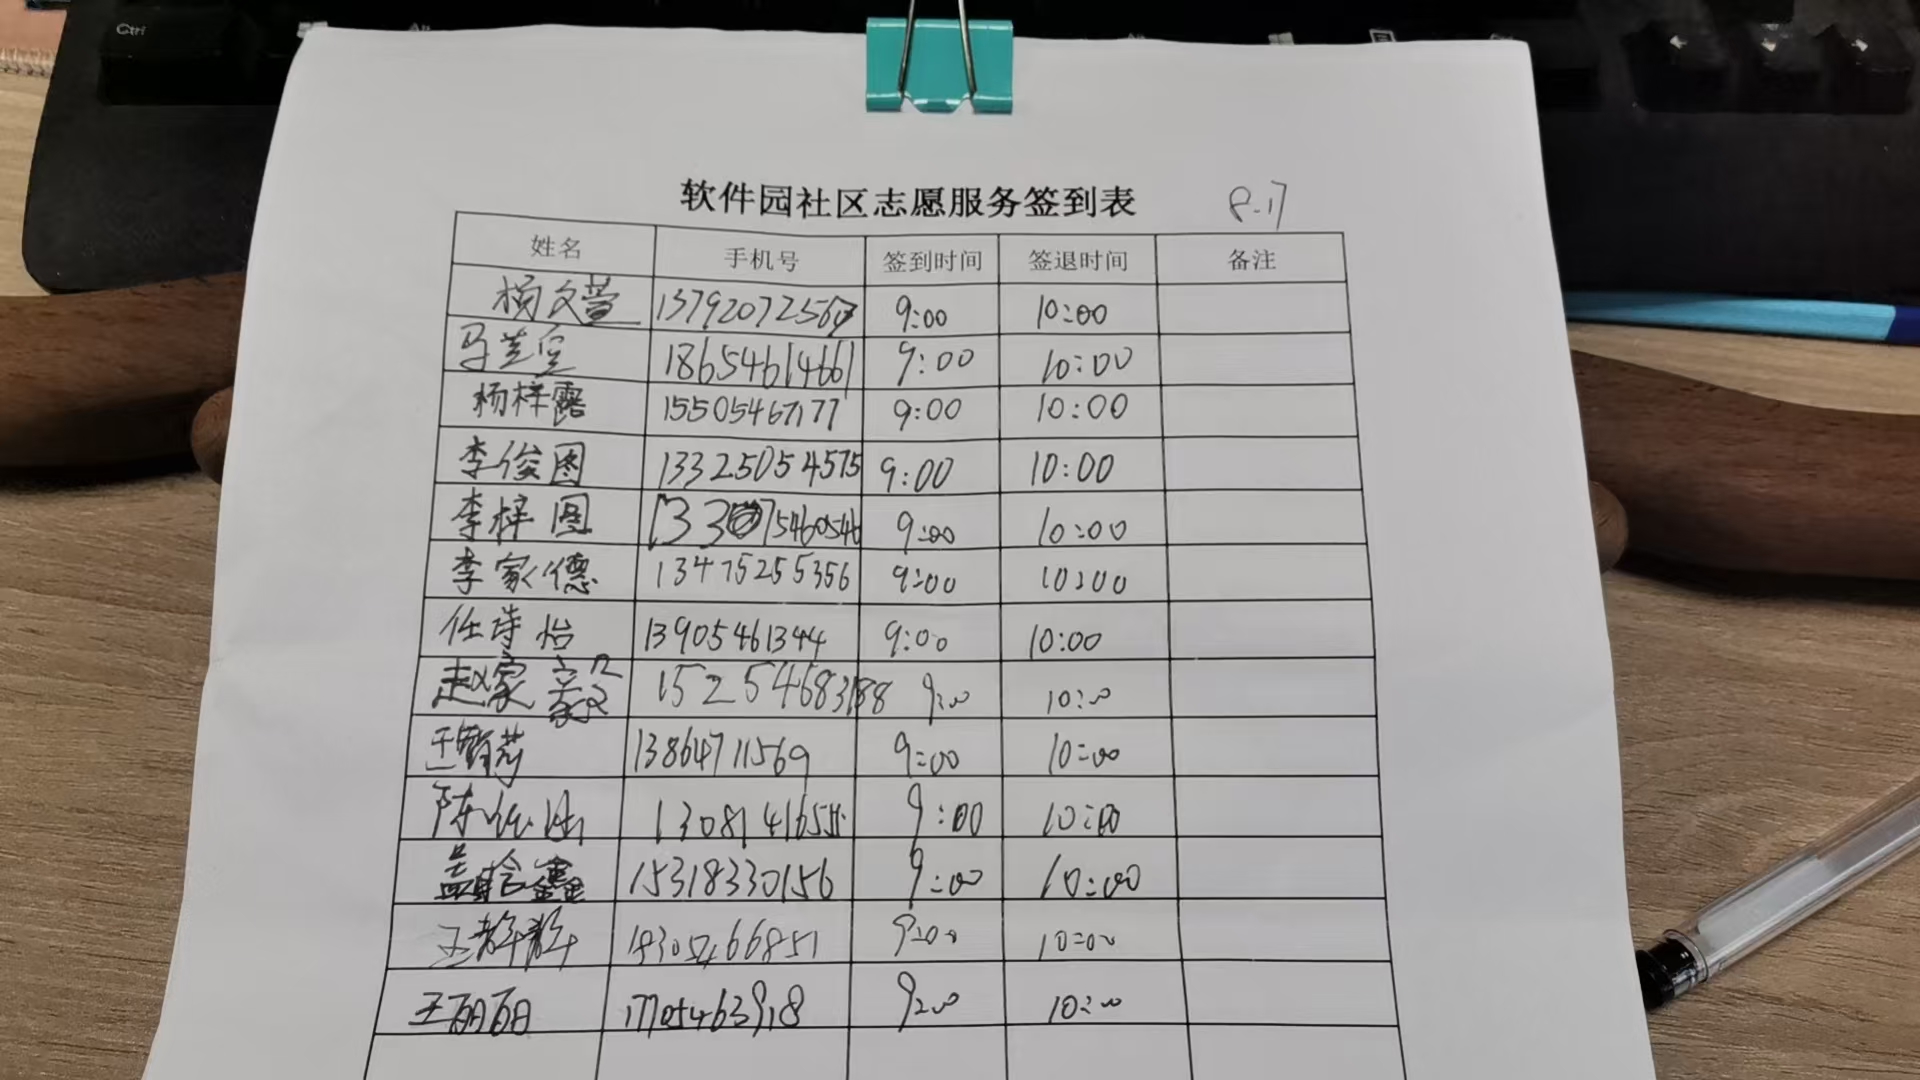 Ctrl
软件园社区志愿服务签到表 8.17
姓名 手机号 签到时间 签退时间 备注
杨文萱 9:00 10:00
马芝宝 18654614661 9:00 10:00
杨梓露 15505467177 9:00 10:00
李俊图 13325054575 9:00 10:00
李梓图 9:00 10:00
李家德 13475255356 9:00 10:00
任诗怡 13905461344 9:00 10:00
赵家毅 15254683188 9:00 10:00
13864711569 9:00 10:00
9:00 10:00
盖晗鑫 15318330156 9:00 10:00
18305466851 9:00 10:00
王丽丽 17705463918 9:00 10:00